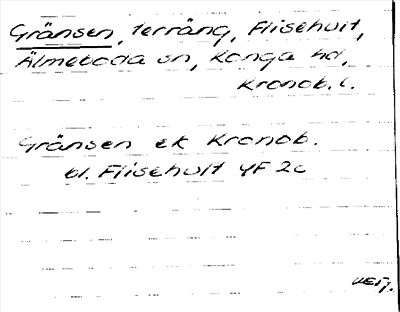 Gränsen, terräng, Flisehult,
Älmeboda sn, Konga hd,
Kronob. l.
Gränsen ek Kronob.
bl. Flisehult 4F 2c